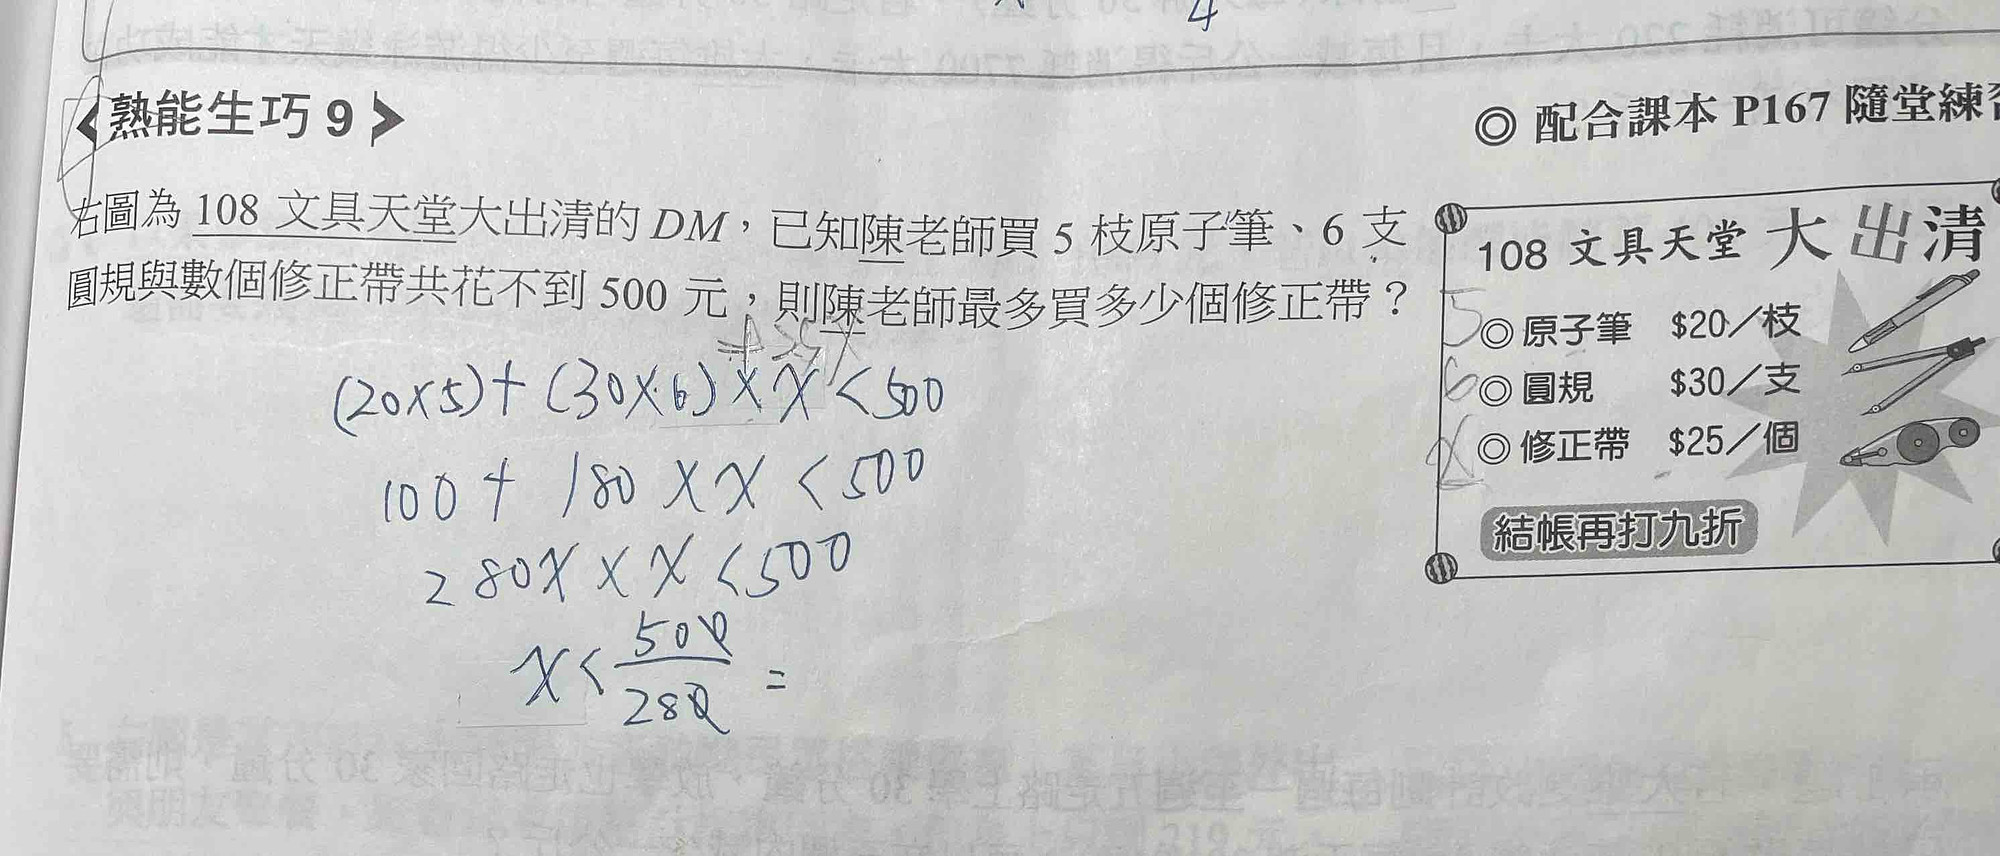 4
熟能生巧 9
◎ 配合課本 P167 隨堂練習
右圖為 108 文具天堂大出清的 DM，已知陳老師買 5 枝原子筆、6 支
圓規與數個修正帶共花不到 500 元，則陳老師最多買多少個修正帶？
(20×5)+(30×6)×x<500
100+180×x<500
280x×x<500
x<500/280=
108 文具天堂 大出清
5 ◎ 原子筆 $20／枝
6 ◎ 圓規 $30／支
x ◎ 修正帶 $25／個
結帳再打九折